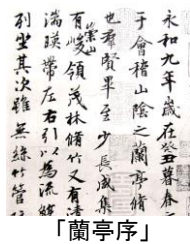 永和九年歲在癸丑暮春
于會稽山陰之蘭亭脩
也群賢畢至少長咸集
有崇山峻領茂林脩竹又有清
湍暎帶左右引以為流觴
列坐其次雖無絲竹管
「蘭亭序」